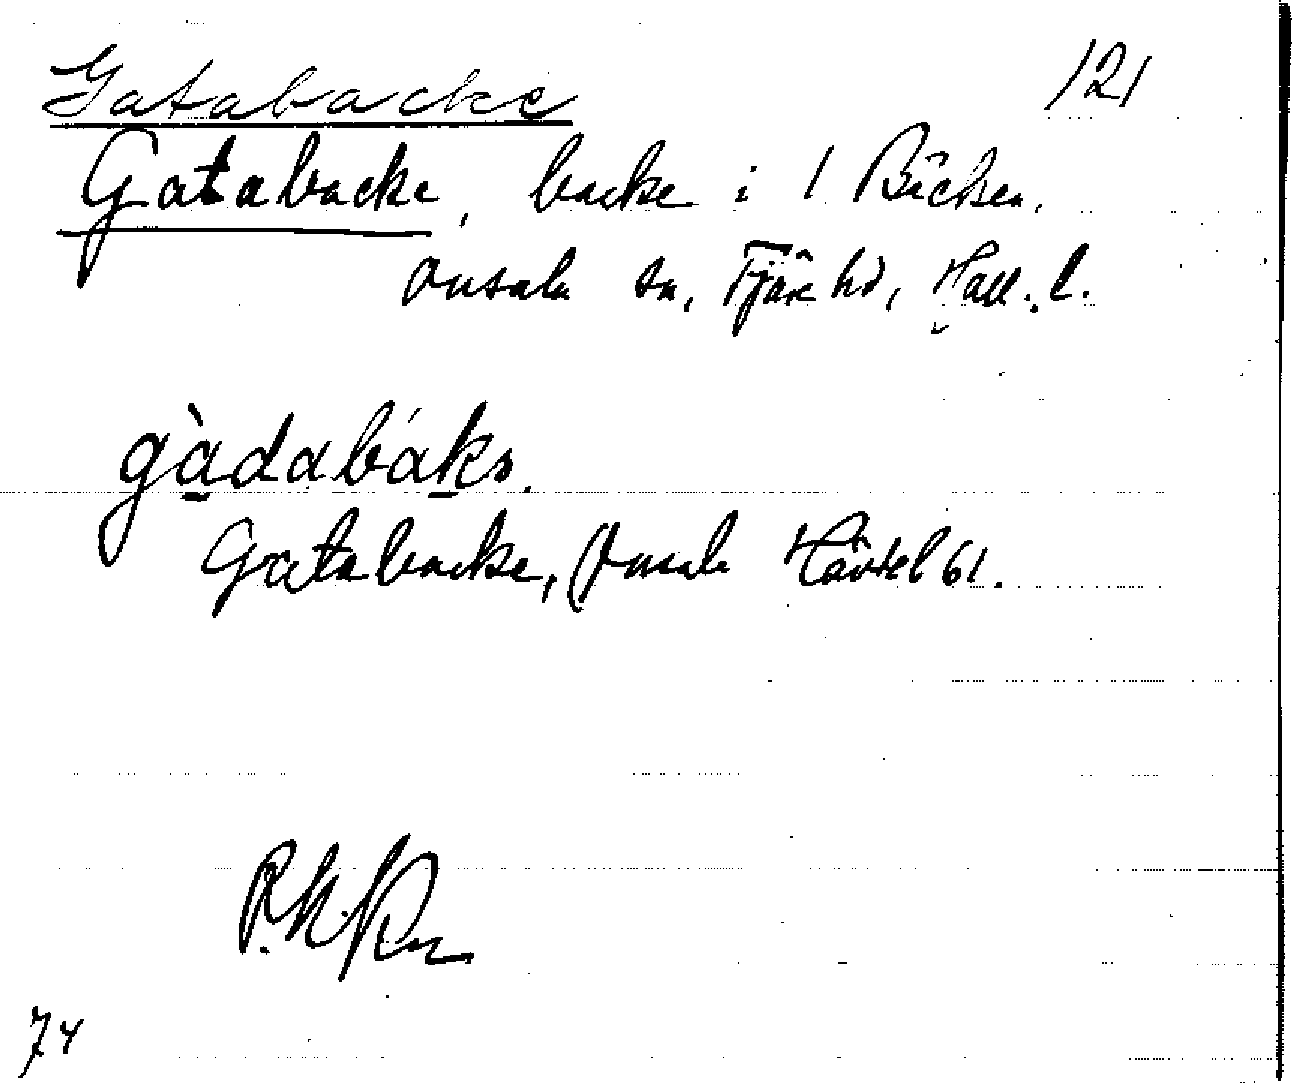 Gatabacke 121
Gatabacke, backe i 1 Bäcken.
Onsala sn, Fjäre hd, Hall. l.
gàdabáka.
Gatabacke, Onsala 61.
74